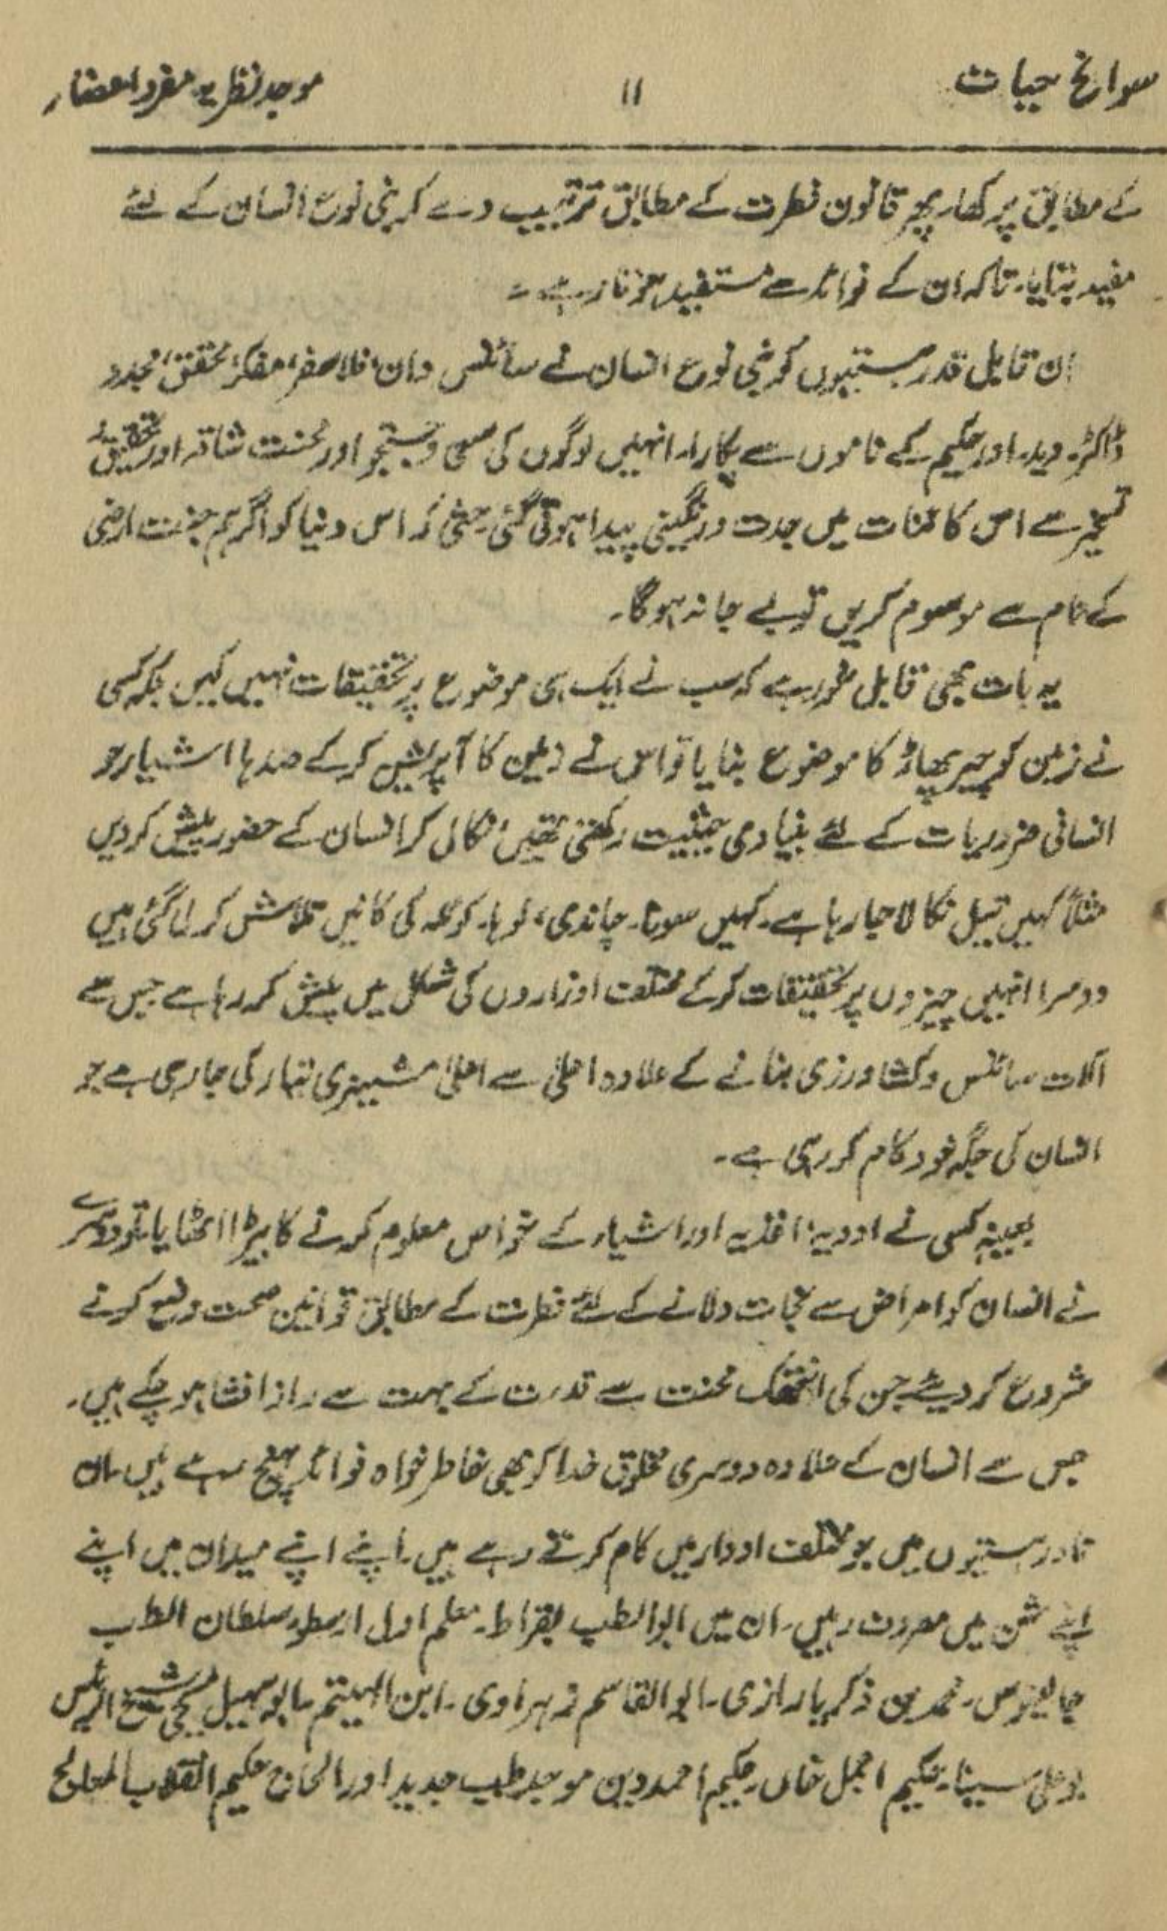 سوانح حیات
۱۱
موجد نظریہ مفرد اعضاء
کے مطابق پرکھا، پھر قانون فطرت کے مطابق ترتیب دے کر بنی نوع انسان کے لئے
مفید بنایا۔ تاکہ ان کے فوائد سے مستفید ہوتا رہے۔
ان قابل قدر ہستیوں کو بنی نوع انسان نے سائنس دان، فلاسفر، مفکر، محقق، مجدد
ڈاکٹر۔ وید۔ اور حکیم کے ناموں سے پکارا۔ انہیں لوگوں کی سعی و جستجو اور محنت شاقہ اور تحقیق و
تسخیر سے اس کائنات میں جدت و رنگینی پیدا ہوتی گئی۔ حتٰی کہ اس دنیا کو اگر ہم جنت ارضی
کے نام سے موسوم کریں تو بے جا نہ ہوگا۔
یہ بات بھی قابل غور ہے کہ سب نے ایک ہی موضوع پر تحقیقات نہیں کیں بلکہ کسی
نے زمین کو چیر پھاڑ کا موضوع بنایا تو اس نے زمین کا آپریشن کرکے صدہا اشیاء جو
انسانی ضروریات کے لئے بنیادی حیثیت رکھتی تھیں، نکال کر انسان کے حضور پیش کر دیں
مثلاً کہیں تیل نکالا جا رہا ہے۔ کہیں سونا۔ چاندی، لوہا۔ کوئلہ کی کانیں تلاش کر لی گئی ہیں
دوسرا انہیں چیزوں پر تحقیقات کرکے مختلف اوزاروں کی شکل میں پیش کر رہا ہے جس سے
آلات سائنس و کشاورزی بنانے کے علاوہ اعلیٰ سے اعلیٰ مشینری تیار کی جا رہی ہے جو
انسان کی جگہ خود کام کر رہی ہے۔
بعینہٖ کسی نے ادویہ، اغذیہ اور اشیاء کے خواص معلوم کرنے کا بیڑا اٹھایا۔ تو دوسرے
نے انسان کو امراض سے نجات دلانے کے لئے فطرت کے مطابق قوانین صحت وضع کرنے
شروع کر دیئے جن کی انتھک محنت سے قدرت کے بہت سے راز افشا ہو چکے ہیں۔
جس سے انسان کے علاوہ دوسری مخلوق خدا کو بھی خاطر خواہ فوائد پہنچ رہے ہیں۔ ان
نادر ہستیوں میں جو مختلف ادوار میں کام کرتے رہے ہیں۔ اپنے اپنے میدان میں اپنے
اپنے مشن میں معروف رہیں۔ ان میں ابوالطب بقراط۔ معلم اول ارسطو۔ سلطان الطب
جالینوس۔ محمد بن ذکریا رازی۔ ابوالقاسم زہراوی۔ ابن الہیثم۔ ابو سہیل مسیحی شیخ الرئیس
بوعلی سینا۔ حکیم اجمل خاں۔ حکیم احمد دین موجد طب جدید اور الحاج حکیم انقلاب المعالج